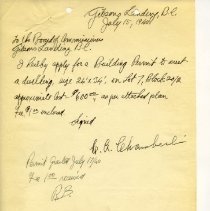 Gibsons Landing, B.C.
July 15, 1940
To the Board of Commissioners
Gibsons Landing B.C.
I hereby apply for a Building Permit to erect
a dwelling, size 26' x 24', on Lot 7, Block
approximate cost $600.00, as per attached plan
Fee $1.00 enclosed
Signed
W. G. Chamberlin
Permit Granted July 17/40
Fee 1.00 received
R.B.